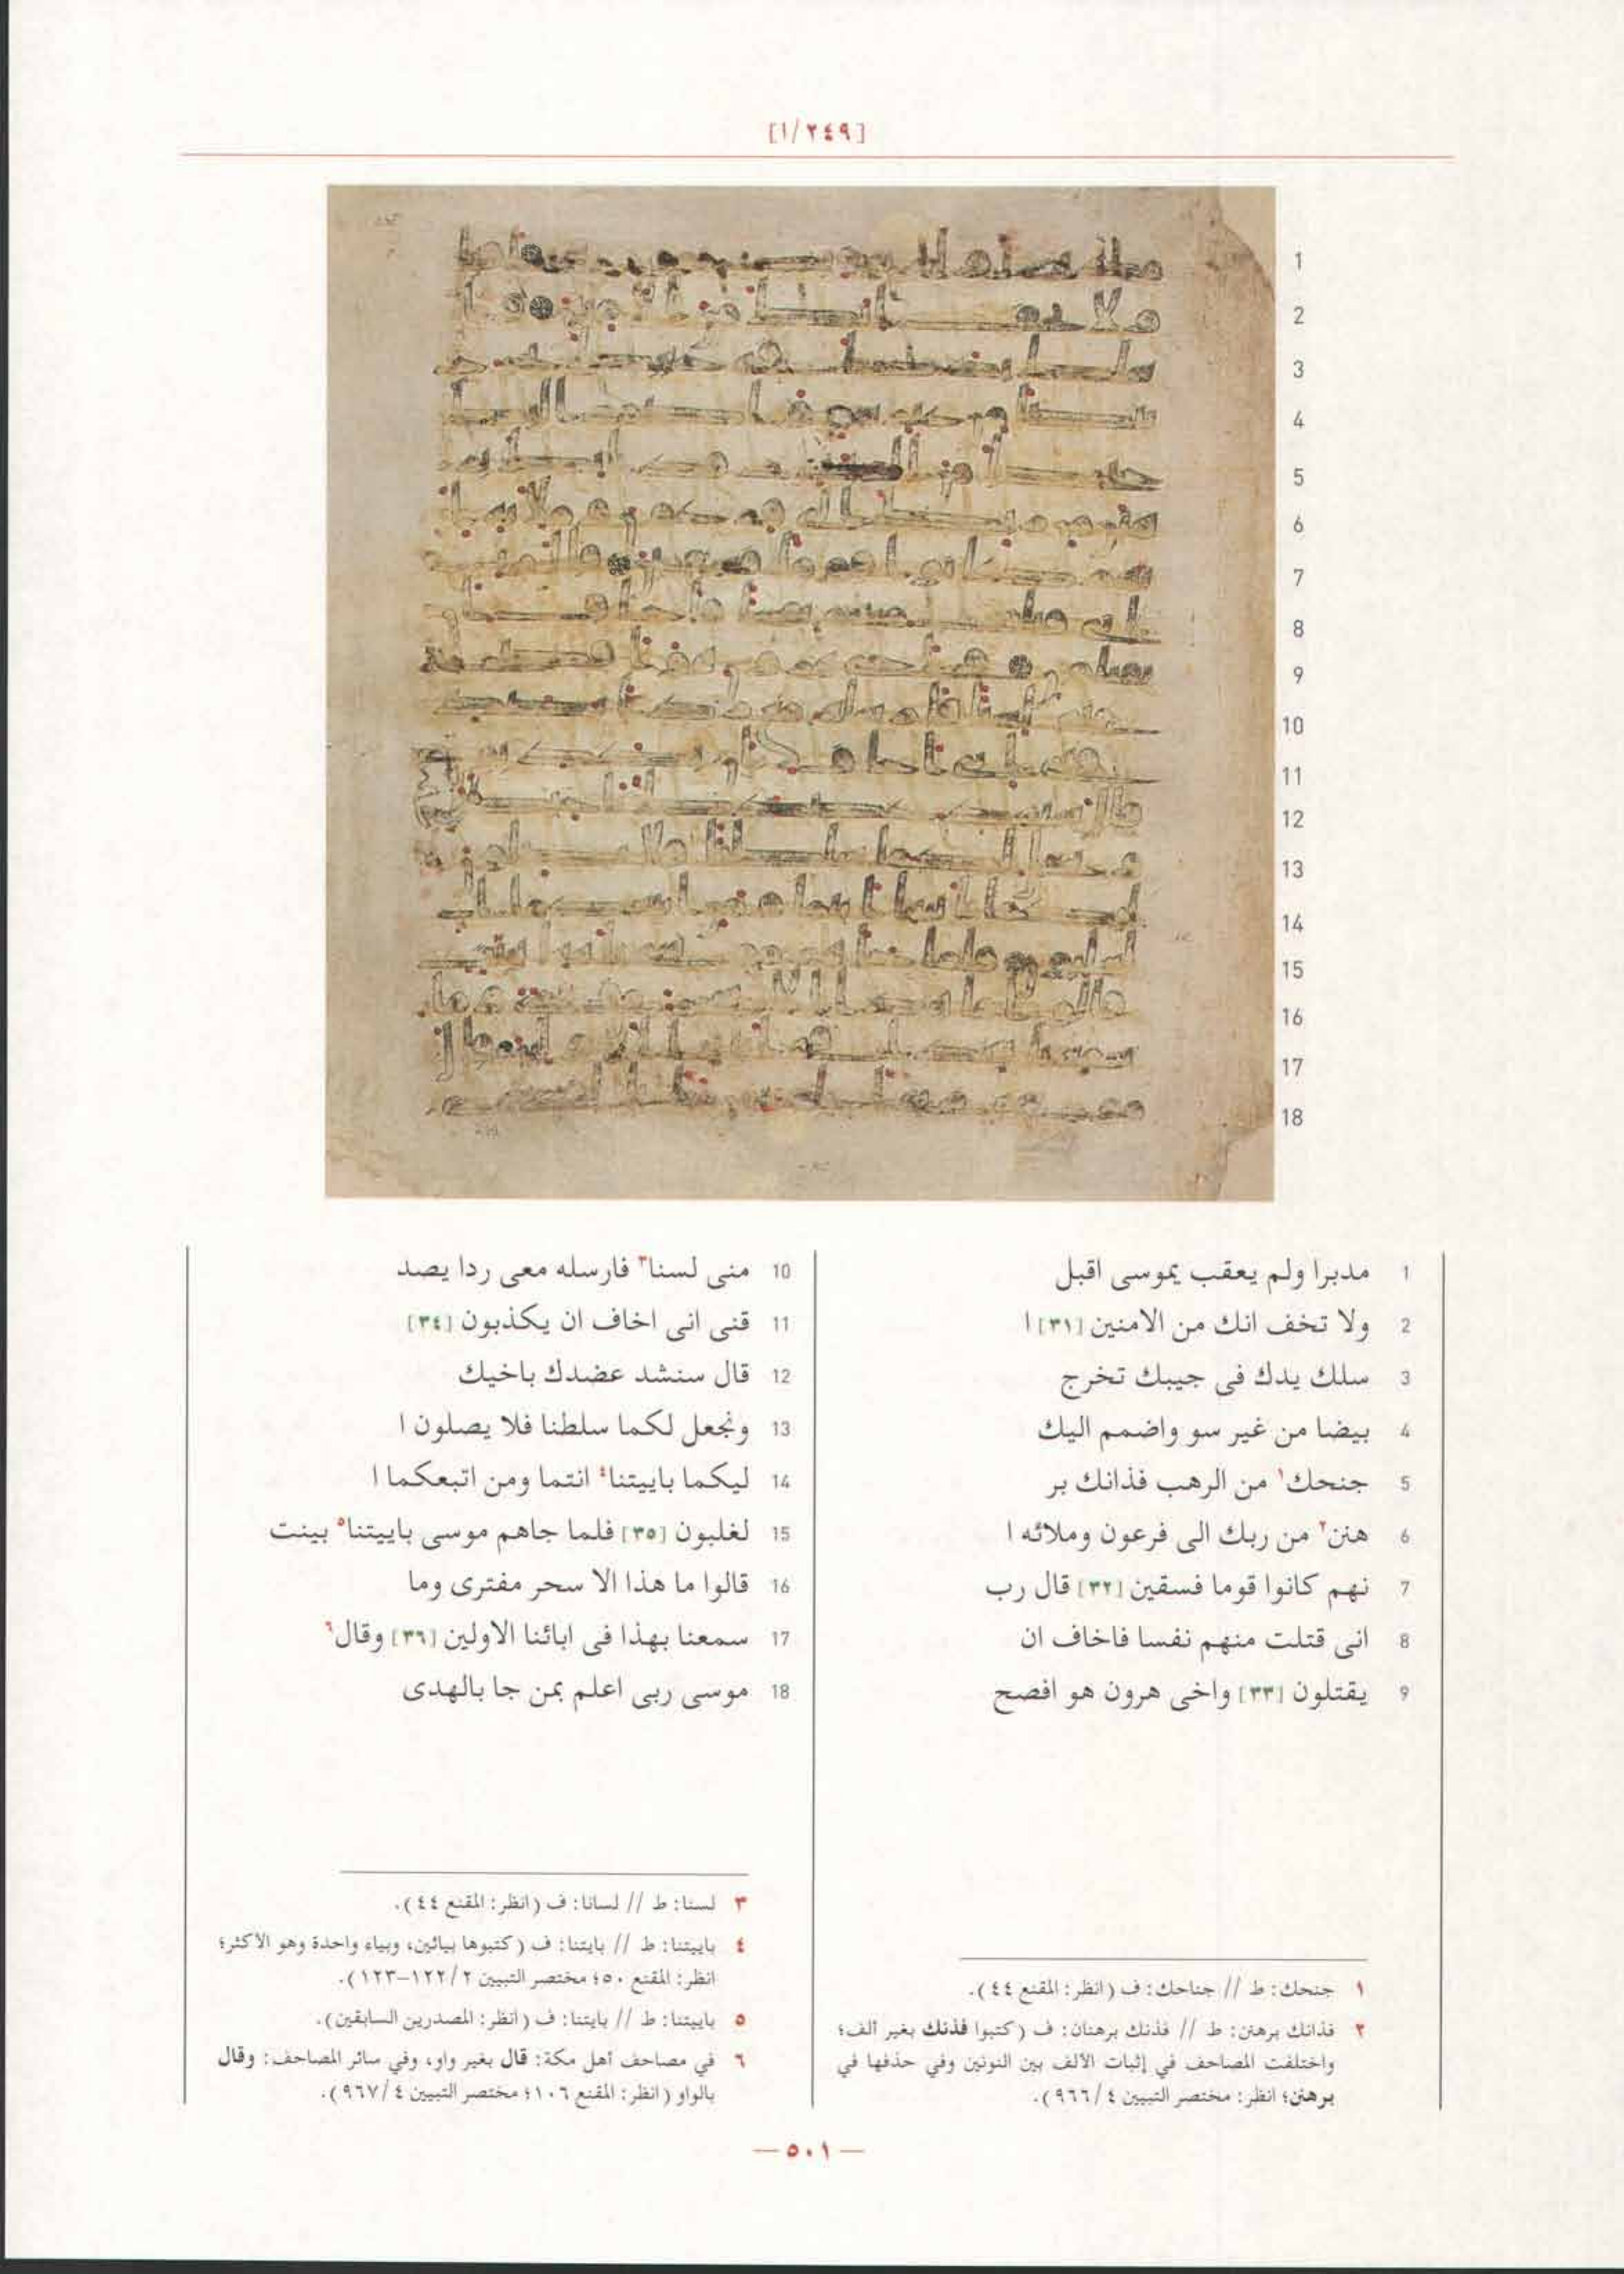 [١/٢٤٩]
1 مدبرا ولم يعقب يموسى اقبل
2 ولا تخف انك من الامنين [٣١] ا
3 سلك يدك فى جيبك تخرج
4 بيضا من غير سو واضمم اليك
5 جنحك١ من الرهب فذانك بر
6 هنن٢ من ربك الى فرعون وملائه ا
7 نهم كانوا قوما فسقين [٣٢] قال رب
8 انى قتلت منهم نفسا فاخاف ان
9 يقتلون [٣٣] واخى هرون هو افصح
10 منى لسنا٣ فارسله معى ردا يصد
11 قنى انى اخاف ان يكذبون [٣٤]
12 قال سنشد عضدك باخيك
13 ونجعل لكما سلطنا فلا يصلون ا
14 ليكما باييتنا٤ انتما ومن اتبعكما ا
15 لغلبون [٣٥] فلما جاهم موسى باييتنا٥ بينت
16 قالوا ما هذا الا سحر مفترى وما
17 سمعنا بهذا فى ابائنا الاولين [٣٦] وقال٦
18 موسى ربى اعلم بمن جا بالهدى
١ جنحك: ط // جناحك: ف (انظر: المقنع ٤٤).
٢ فذانك برهنن: ط // فذنك برهنان: ف (كتبوا فذنك بغير ألف؛
واختلفت المصاحف في إثبات الألف بين النونين وفي حذفها في
برهنن؛ انظر: مختصر التبيين ٤/٩٦٦).
٣ لسنا: ط // لسانا: ف (انظر: المقنع ٤٤).
٤ باييتنا: ط // بايتنا: ف (كتبوها بيائين، وبياء واحدة وهو الأكثر؛
انظر: المقنع ٥٠؛ مختصر التبيين ٢/١٢٢-١٢٣).
٥ باييتنا: ط // بايتنا: ف (انظر: المصدرين السابقين).
٦ في مصاحف أهل مكة: قال بغير واو، وفي سائر المصاحف: وقال
بالواو (انظر: المقنع ١٠٦؛ مختصر التبيين ٤/٩٦٧).
— ٥٠١ —